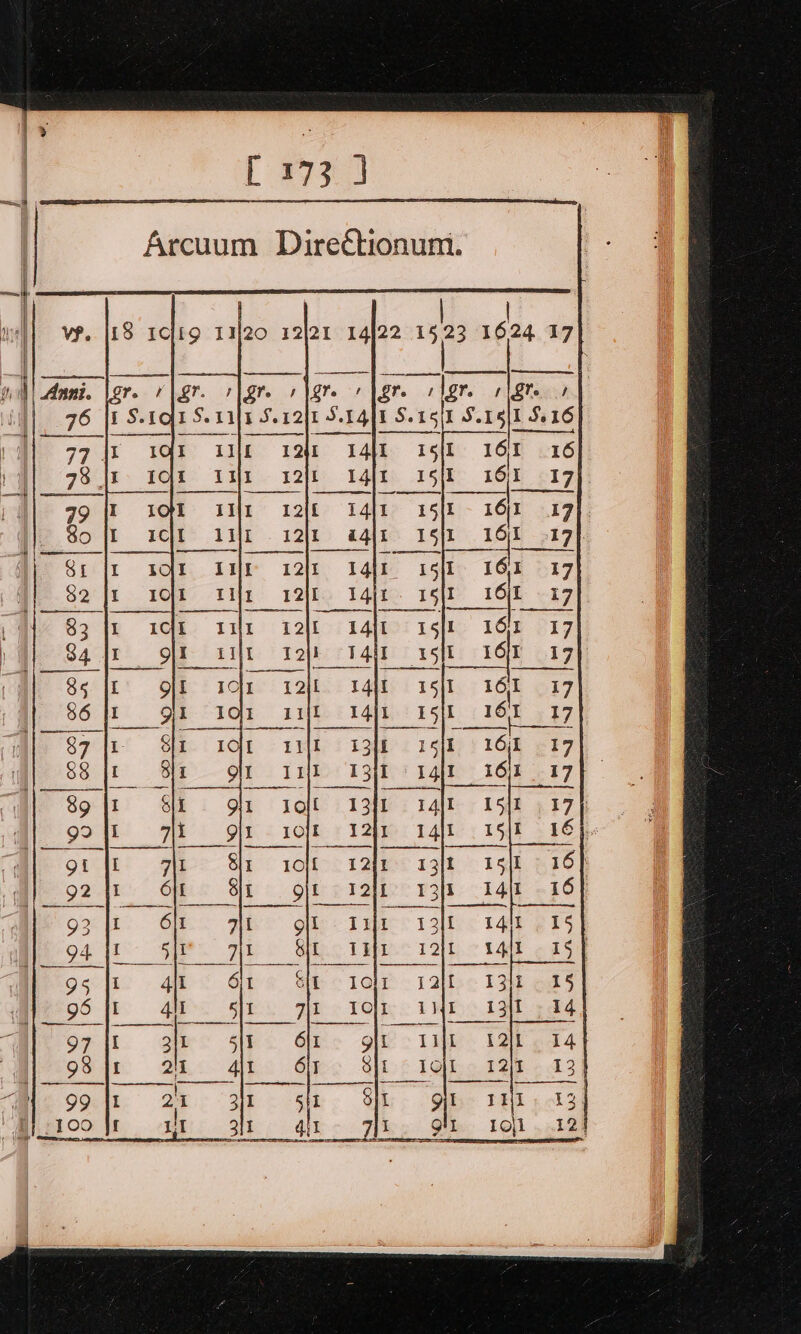 [ 173 ]
Arcuum Directionum.
vs. | 18 10 | 19 11 | 20 12 | 21 14 | 22 15 | 23 16 | 24 17
Anni. | gr. ′ | gr. ′ | gr. ′ | gr. ′ | gr. ′ | gr. ′ | gr. ′
76 | 1 S.10 | 1 S.11 | 1 S.12 | 1 S.14 | 1 S.15 | 1 S.15 | 1 S.16
77 | 1 10 | 1 11 | 1 12 | 1 14 | 1 15 | 1 16 | 1 16
78 | 1 10 | 1 11 | 1 12 | 1 14 | 1 15 | 1 16 | 1 17
79 | 1 10 | 1 11 | 1 12 | 1 14 | 1 15 | 1 16 | 1 17
80 | 1 10 | 1 11 | 1 12 | 1 14 | 1 15 | 1 16 | 1 17
81 | 1 10 | 1 11 | 1 12 | 1 14 | 1 15 | 1 16 | 1 17
82 | 1 10 | 1 11 | 1 12 | 1 14 | 1 15 | 1 16 | 1 17
83 | 1 10 | 1 11 | 1 12 | 1 14 | 1 15 | 1 16 | 1 17
84 | 1 9 | 1 11 | 1 12 | 1 14 | 1 15 | 1 16 | 1 17
85 | 1 9 | 1 10 | 1 12 | 1 14 | 1 15 | 1 16 | 1 17
86 | 1 9 | 1 10 | 1 11 | 1 14 | 1 15 | 1 16 | 1 17
87 | 1 8 | 1 10 | 1 11 | 1 13 | 1 15 | 1 16 | 1 17
88 | 1 8 | 1 9 | 1 11 | 1 13 | 1 14 | 1 16 | 1 17
89 | 1 8 | 1 9 | 1 10 | 1 13 | 1 14 | 1 15 | 1 17
90 | 1 7 | 1 9 | 1 10 | 1 12 | 1 14 | 1 15 | 1 16
91 | 1 7 | 1 8 | 1 10 | 1 12 | 1 13 | 1 15 | 1 16
92 | 1 6 | 1 8 | 1 9 | 1 12 | 1 13 | 1 14 | 1 16
93 | 1 6 | 1 7 | 1 9 | 1 11 | 1 13 | 1 14 | 1 15
94 | 1 5 | 1 7 | 1 8 | 1 11 | 1 12 | 1 14 | 1 15
95 | 1 4 | 1 6 | 1 8 | 1 10 | 1 12 | 1 13 | 1 15
96 | 1 4 | 1 5 | 1 7 | 1 10 | 1 11 | 1 13 | 1 14
97 | 1 3 | 1 5 | 1 6 | 1 9 | 1 11 | 1 12 | 1 14
98 | 1 2 | 1 4 | 1 6 | 1 8 | 1 10 | 1 12 | 1 13
99 | 1 2 | 1 3 | 1 5 | 1 8 | 1 9 | 1 11 | 1 13
100 | 1 1 | 1 3 | 1 4 | 1 7 | 1 9 | 1 10 | 1 12